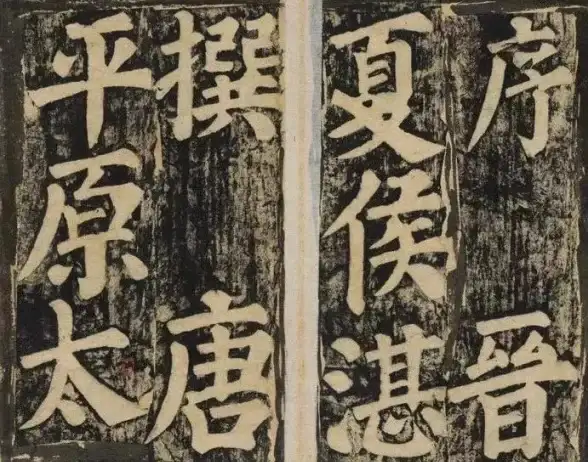 序　晉
夏侯湛
撰　唐
平原太